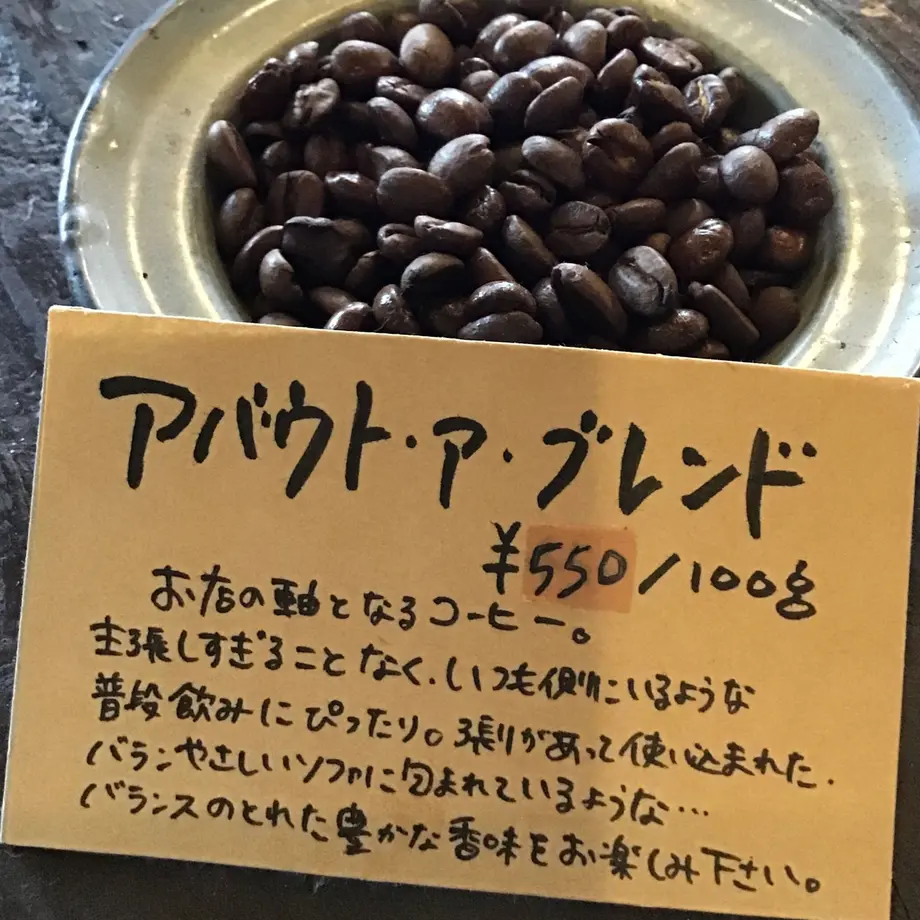 アバウト・ア・ブレンド
¥550/100g
お店の軸となるコーヒー。
主張しすぎることなく、いつも側にいるような
普段飲みにぴったり。張りがあって使い込まれた、
バランやさしいソファに包まれているような…
バランスのとれた豊かな香味をお楽しみ下さい。